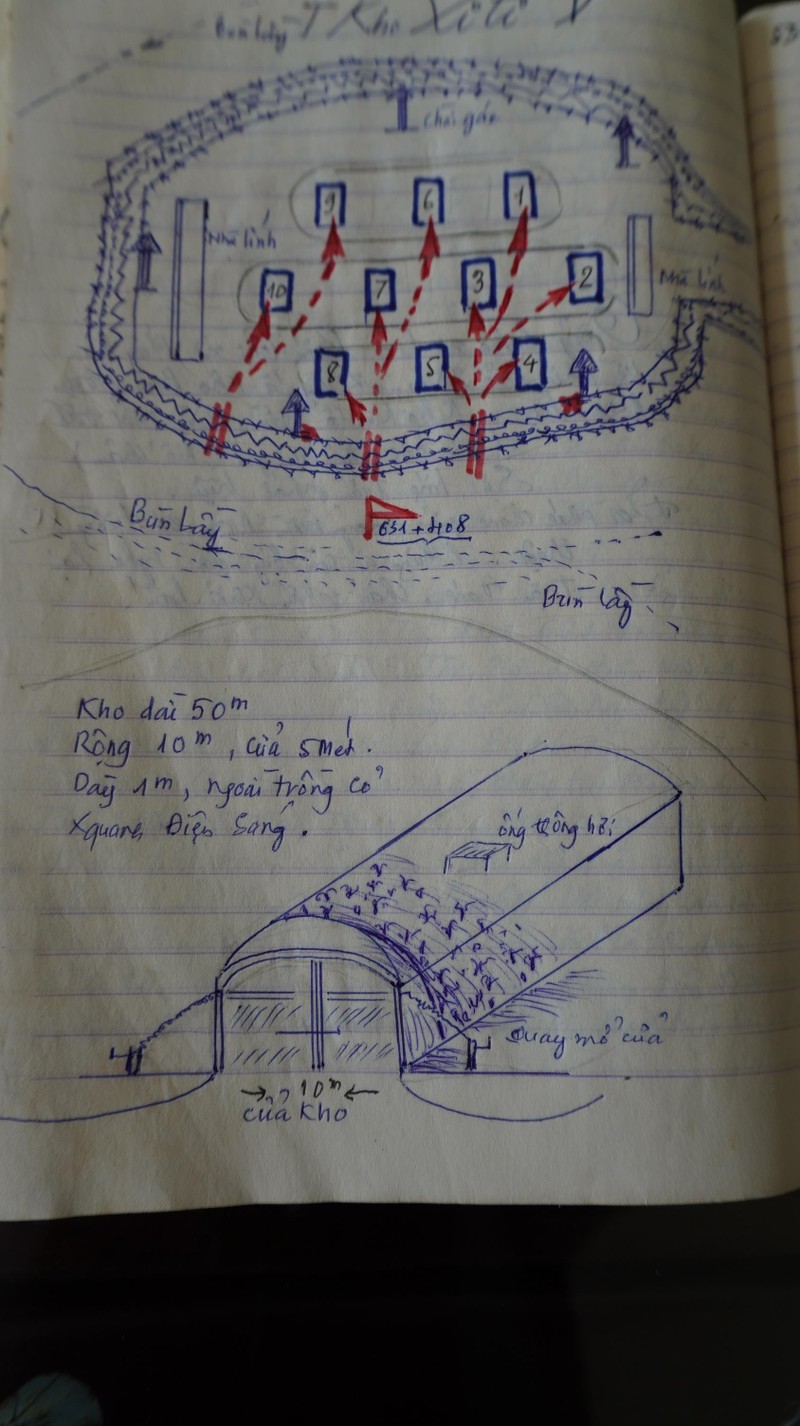 Bùn lầy T Kho Xi
Chòi gác
9 6 1
Nhà lính
Nhà lính
10 7 3 2
8 5 4
Bùn Lầy
631 + 408
Bùn lầy
Kho dài 50m
Rộng 10m, cửa 5 mét.
Dày 1m, ngoài trồng cỏ
Xquanh Điện Sáng.
ống thông hơi
Quay mở cửa
10m
cửa Kho
53